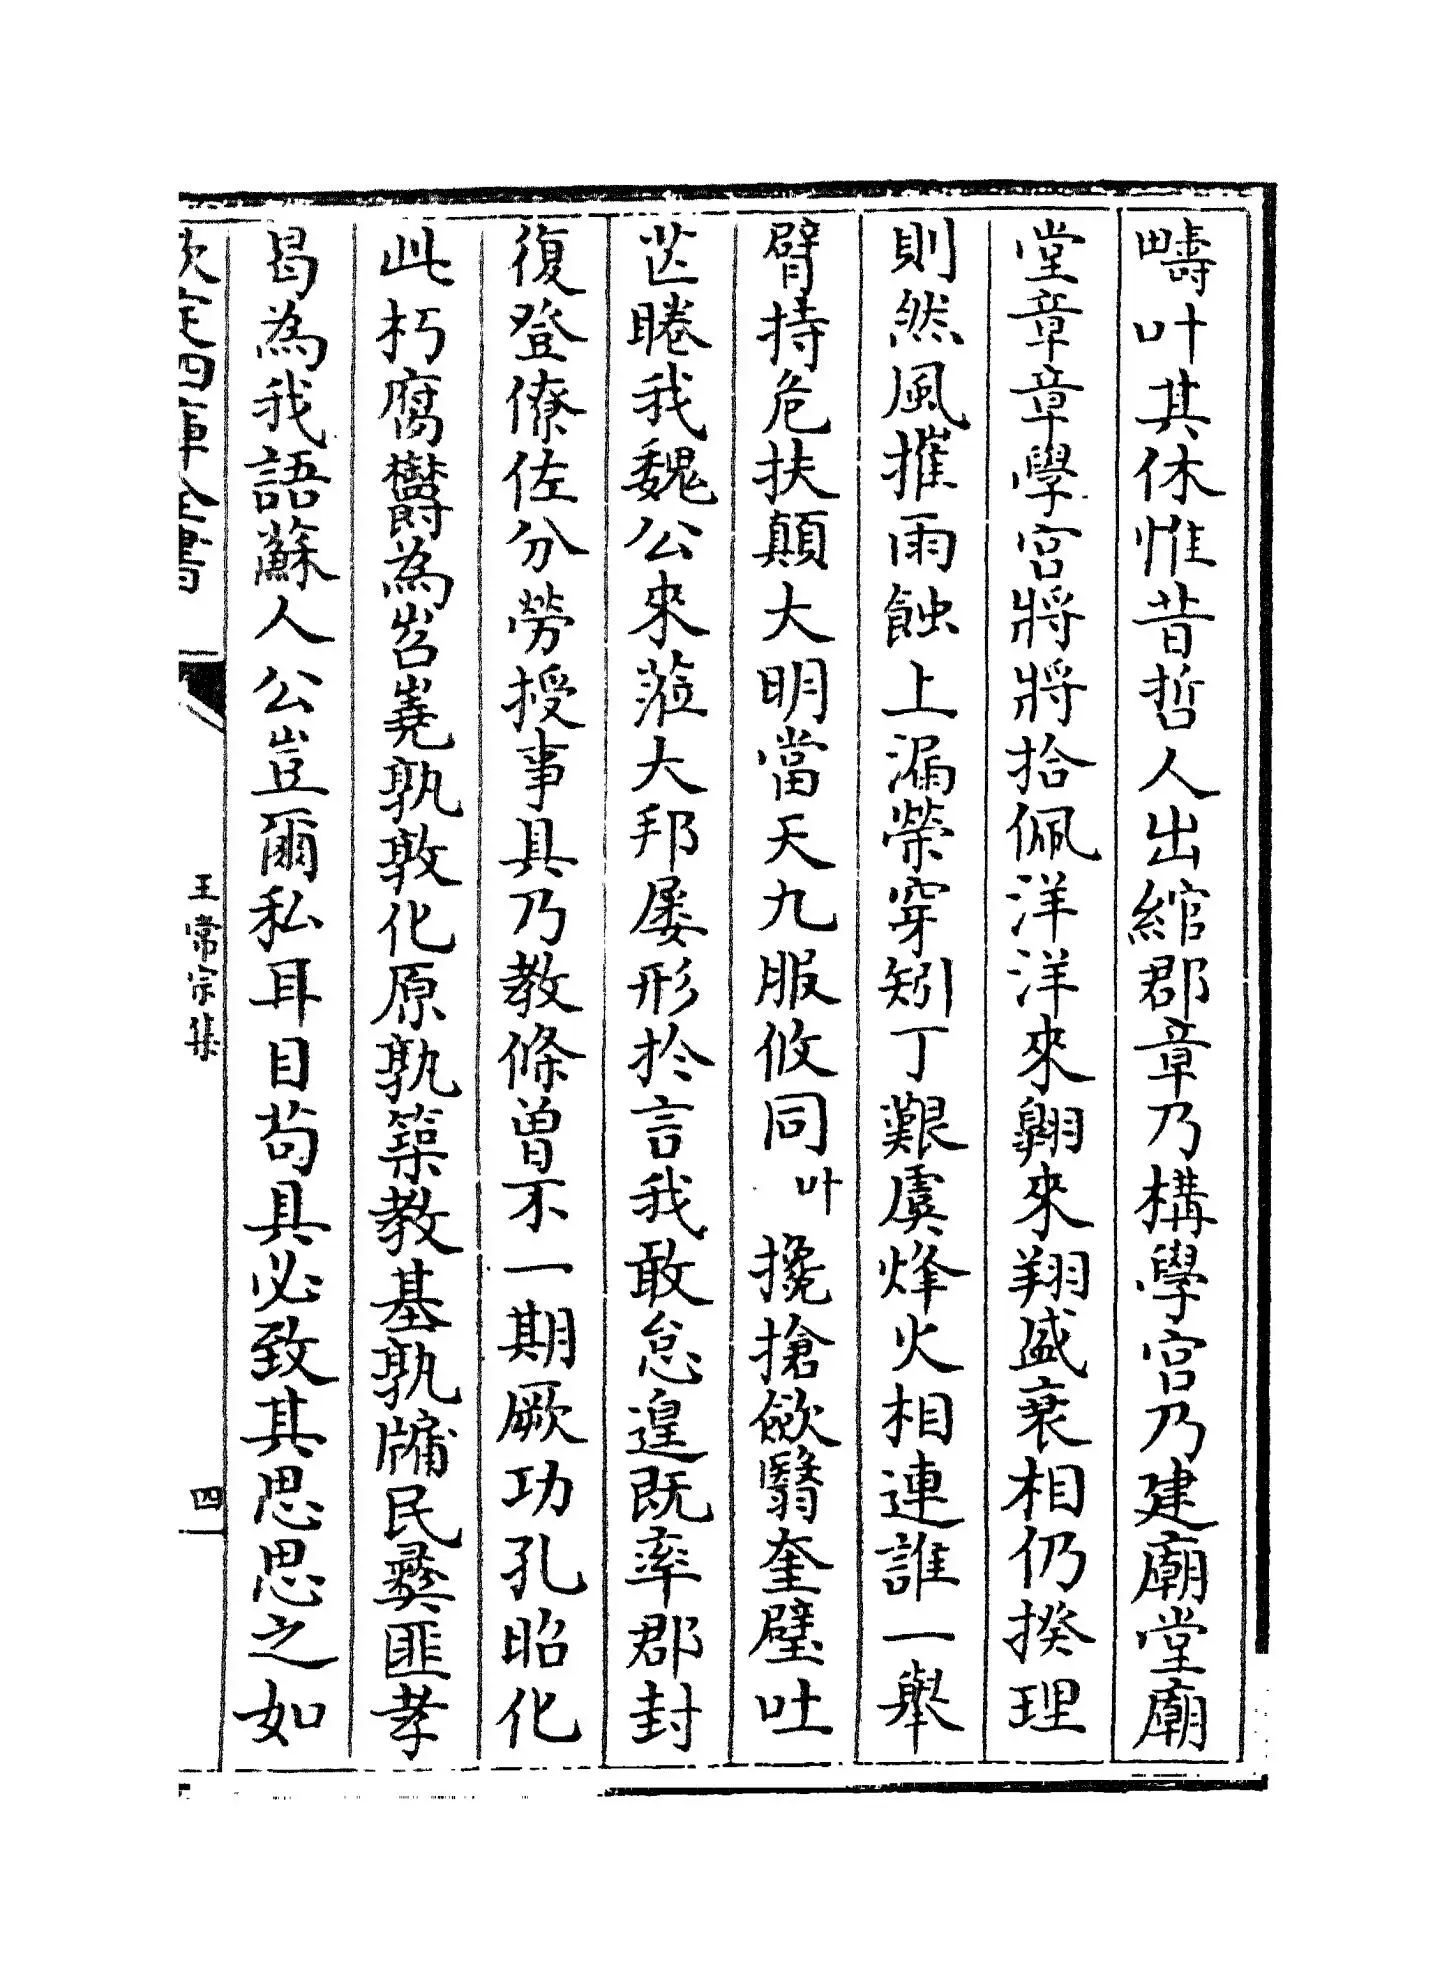 疇叶其休惟昔哲人出綰郡章乃構學宮乃建廟堂廟
堂章章學宮將將拾佩洋洋來翺來翔盛衰相仍揆理
則然風摧雨蝕上漏滎穿矧丁艱虞烽火相連誰一舉
臂持危扶顛大明當天九服攸同叶攙搶歛翳奎璧吐
芒睠我魏公來蒞大邦屢形於言我敢怠遑既率郡封
復登僚佐分勞授事具乃教條曾不一期厥功孔昭化
此朽腐欝為岧嶤孰敦化原孰築教基孰牖民彝匪孝
曷為我語蘇人公豈爾私耳目苟具必致其思思之如
欽定四庫全書
王常宗集
四